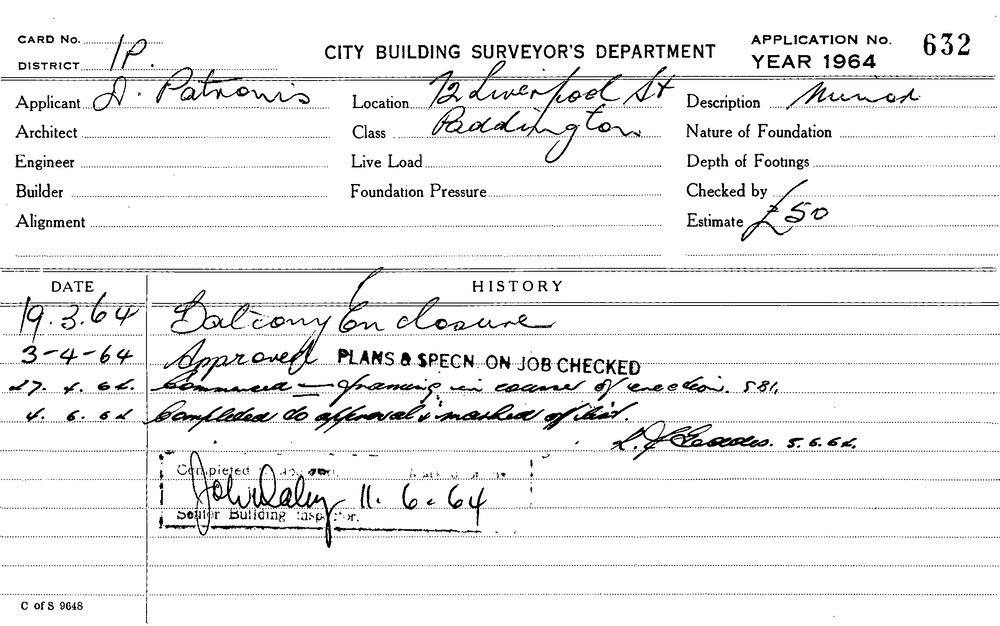 CARD No.
DISTRICT 1P.
CITY BUILDING SURVEYOR'S DEPARTMENT
APPLICATION No. 632
YEAR 1964
Applicant D. Patronis
Location 72 Liverpool St
Description Minor
Architect
Class Paddington
Nature of Foundation
Engineer
Live Load
Depth of Footings
Builder
Foundation Pressure
Checked by
Alignment
Estimate £50
DATE HISTORY
19.3.64 Balcony Enclosure
3-4-64 Approved PLANS & SPECN. ON JOB CHECKED
27. 4. 64. Commenced — framing in course of erection. 581.
4. 6. 64 Completed to approval & marked off list.
5.6.64.
Completed
John Daley 11. 6. 64
Senior Building Inspector.
C of S 9648